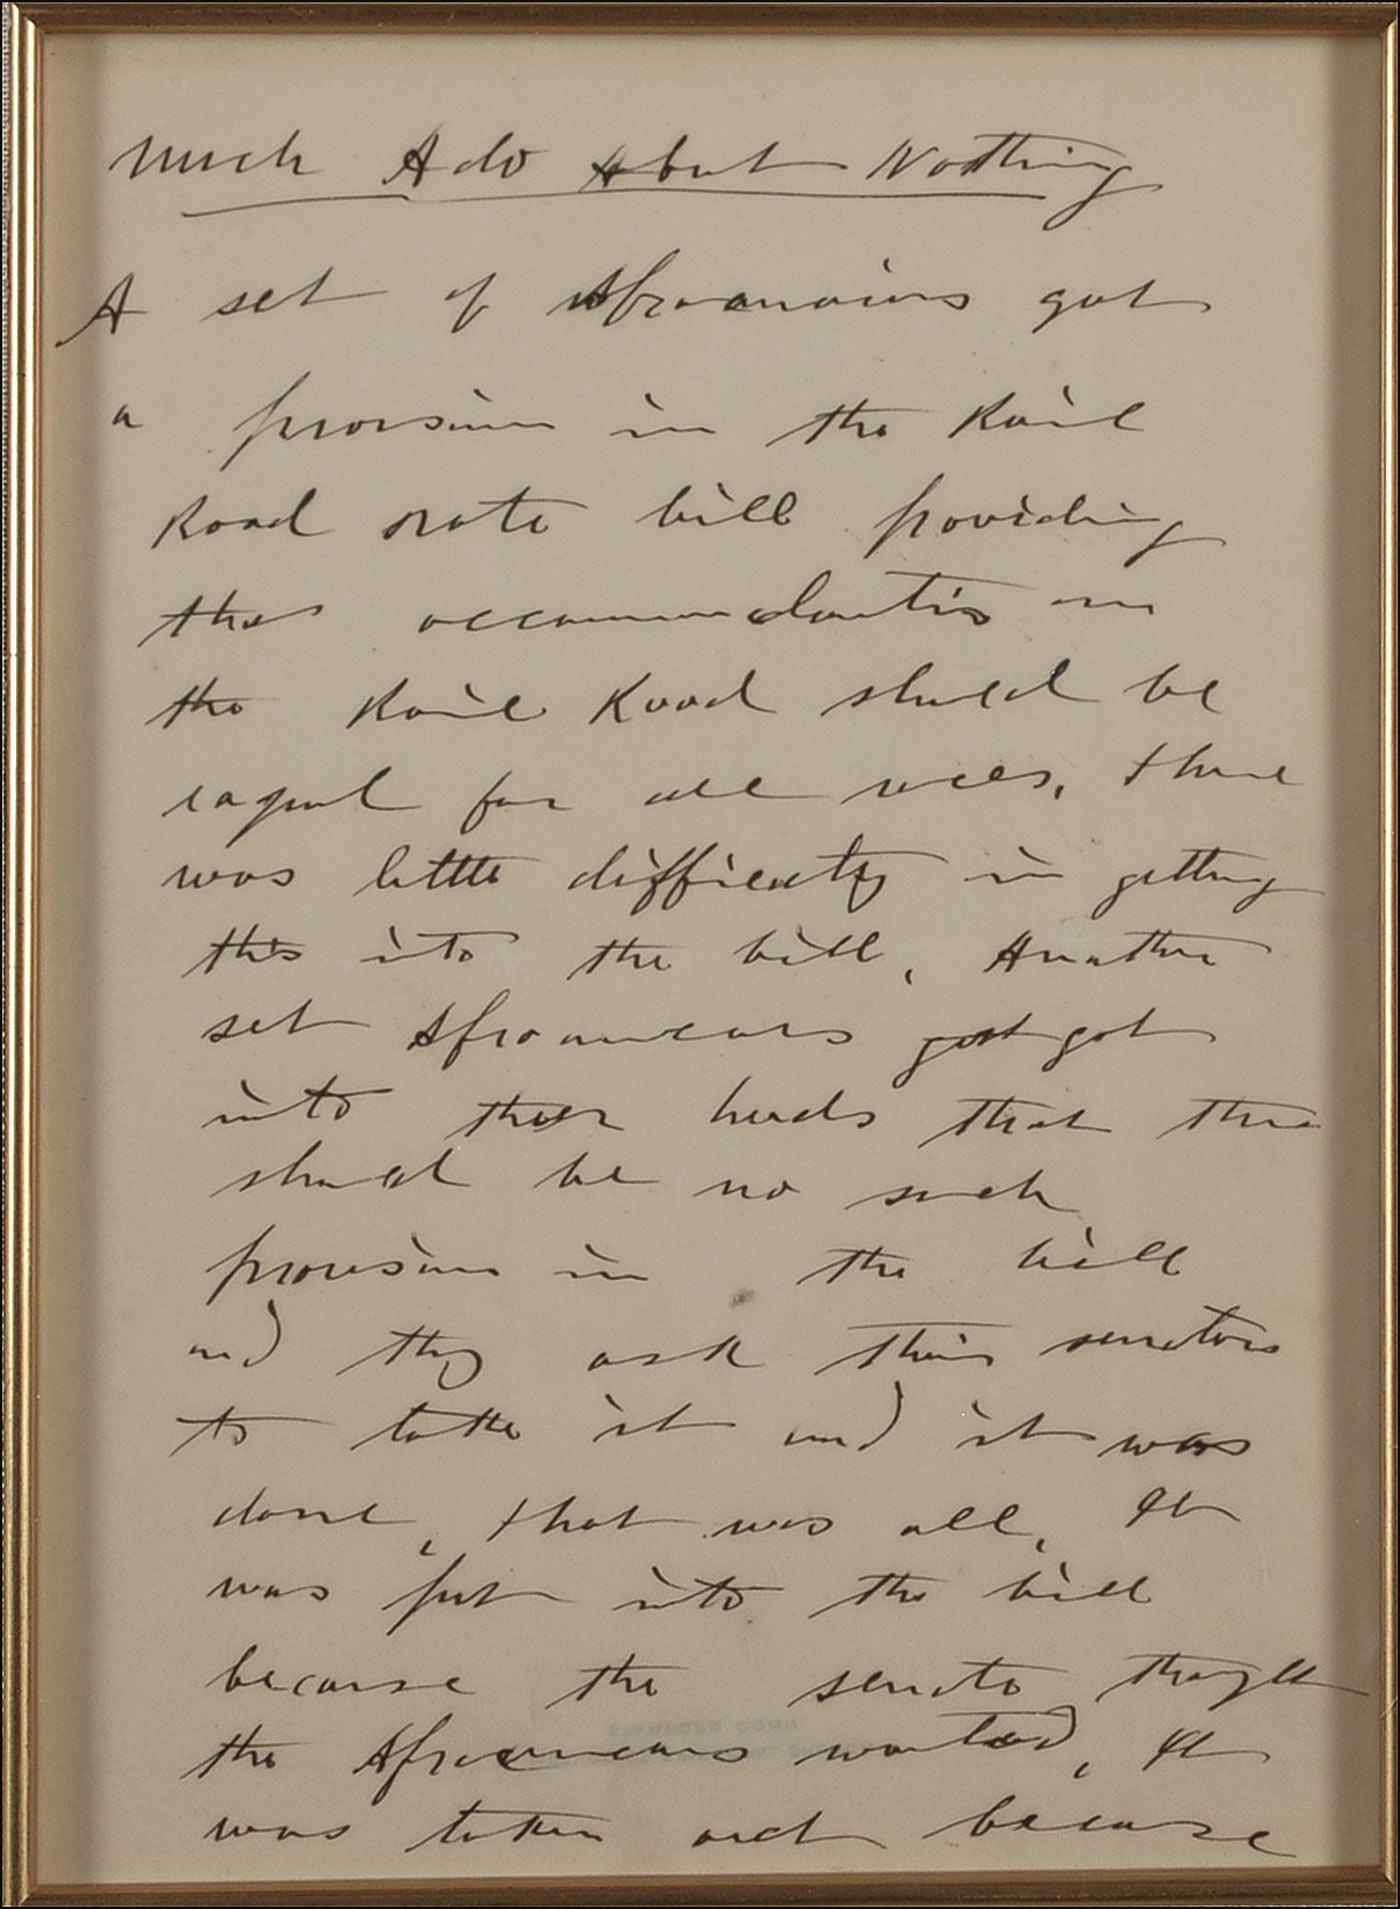 Much Ado About Nothing
A set of Afroamericans got
a provision in the Rail
Road rate bill providing
that accommodation on
the Rail Road should be
equal for all races, there
was little difficulty in getting
this into the bill, Another
set Afroamericans got got
into their heads that there
should be no such
provision in the bill
and they ask their senators
to take it and it was
done, that was all, It
was put into the bill
because the senate thought
the Afroamericans wanted, It
was taken out because